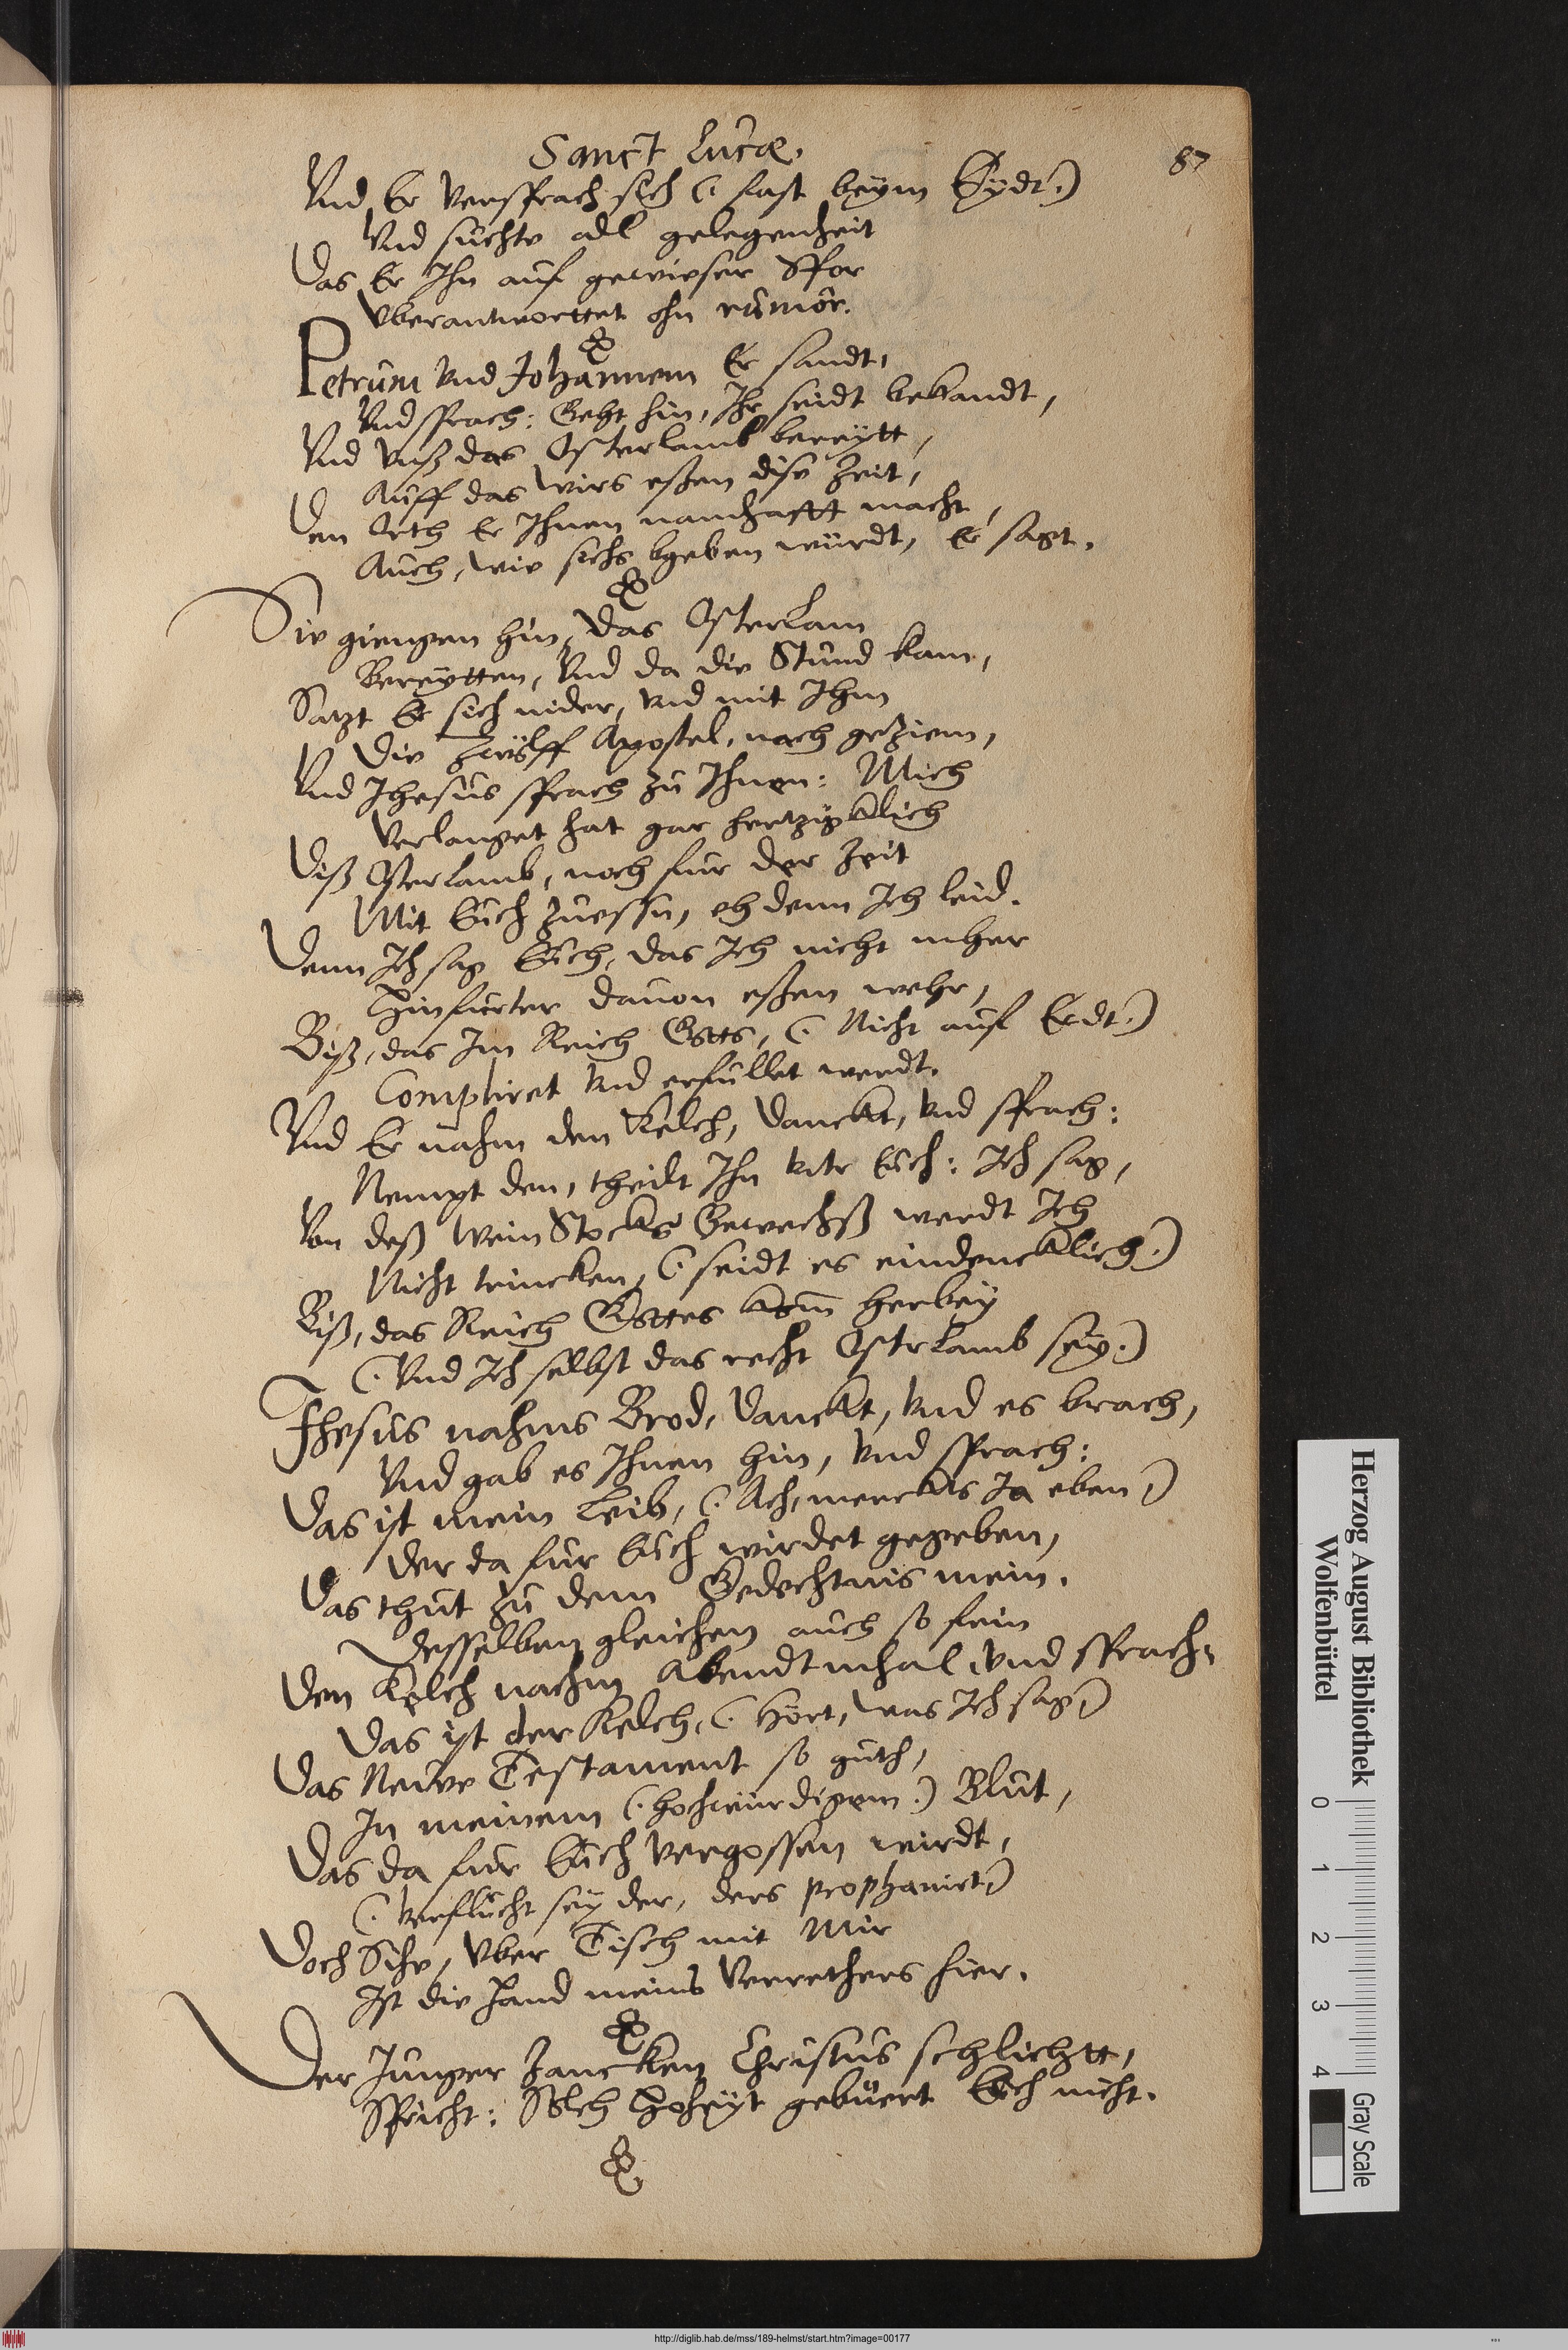 Sanct Lucæ.
87
Vnd Er versprach sich (: fast beym Eydt :)
Vnd suchte all gelegenheit
Das Er Ihn auf gewieser Spor
Vberantworttet ohn rumor.
Petrum vnd Johannem Er sandt,
Vnd sprach: Geht hin, Ihr seidt bekandt,
Vnd vnß das Osterlamb bereytt,
Auff das wirs eßen dise Zeit,
Den Orth Er Ihnen namhafftt macht,
Auch, wie sichs bgeben würdt, Er sagt.
Sie giengen hin, das Osterlam
Bereytten, Vnd da die Stund kam,
Satzt Er sich nider, vnd mit Ihm
Die Zwölff Apostel, nach geziem,
Vnd Jhesus sprach zu Ihnen: Mich
Verlanget hat gar hertzigklich
Diß Osterlamb, noch fur der Zeit
Mit Euch zuessn, eh denn Ich leid.
Denn Ich sag Euch, das Ich nicht mher
Hinfurter dauon eßen wehr,
Biß, das Im Reich Gotts, (: Nicht auf Erdt :)
Compliret vnd erfullet werdt.
Vnd Er nahm den Kelch, danckt, vnd sprach:
Nempt den, theilt Ihn vntr Euch: Ich sag,
Von deß Wein Stocks Gewechß werdt Ich
Nicht trincken, (: seidt es eindencklich :)
Biß, das Reich Gottes kom herbey
(: Vnd Ich selbst das recht Ostrlamb sey :)
Jhesus nahms Brod, danckt, vnd es brach,
Vnd gab es Ihnen hin, vnd sprach:
Das ist mein Leib, (: Ach, merckts Ja eben :)
Der da fur Euch wirdet gegeben,
Das thut zu dem Gedechtnis mein.
Desselben gleichen auch so fein
Den Kelch nachm Abendtmhal, vnd sprach:
Das ist der Kelch, (: Hört, was Ich sag :)
Das Neuwe Testament so guth,
In meinem (: hochwürdigem :) Blut,
Das da fur Euch vergossen wirdt,
(: Verflucht sey der, ders prophanirt :)
Doch Sihe, vber Tisch mit Mir
Ist die Hand meins Verrethers hier.
Der Junger Zancken Christus schlichtt,
Spricht: Solch Hoheyt gebüert Euch nicht.
Herzog August Bibliothek
Wolfenbüttel
0 1 2 3 4
Gray Scale
http://diglib.hab.de/mss/189-helmst/start.htm?image=00177